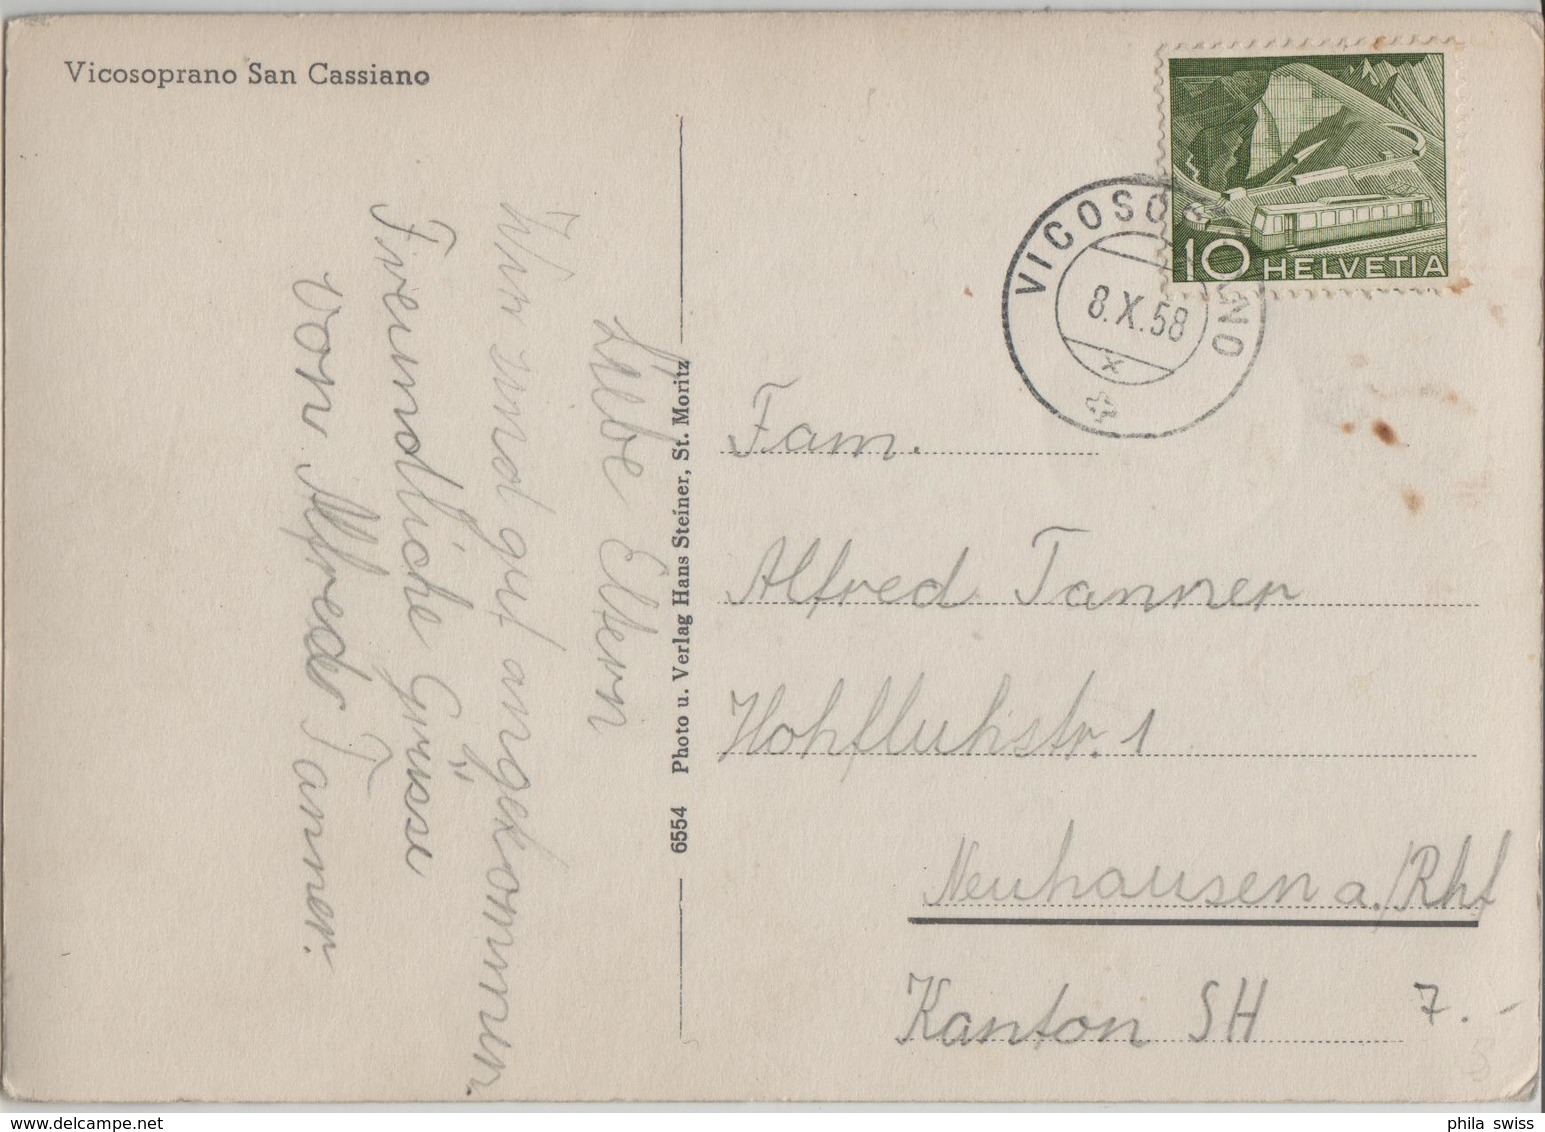 Vicosoprano San Cassiano
Liebe Eltern
Wir sind gut angekommen
Freundliche Grüsse
von Alfred Tanner.
6554 Photo u. Verlag Hans Steiner, St. Moritz
10 HELVETIA
VICOSOPRANO
8.X.58
x
Fam.
Alfred Tanner
Hohfluhstr. 1
Neuhausen a./Rhf
Kanton SH
7.-
5
phila swiss